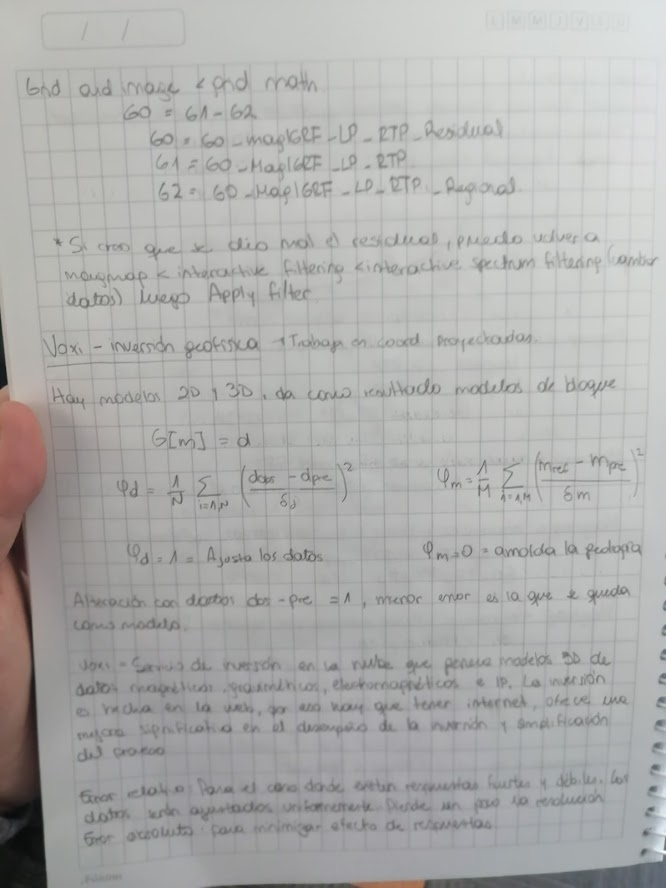 / /
L M M J V S D
Grid and image < grid math
G0 = G1 - G2
G0 = G0_magIGRF_LP_RTP_Residual
G1 = G0_MagIGRF_LP_RTP
G2 = G0_MagIGRF_LP_RTP_Regional.
* Si creo que se dio mal el residual, puedo volver a
magmap < interactive filtering < interactive spectrum filtering (cambiar
datos) luego Apply filter.
Voxi - inversión geofísica → Trabaja en coord Proyectadas.
Hay modelos 2D y 3D, da como resultado modelos de bloque
G[m] = d
φd = 1/N Σ i=1,N ((dobs - dpre)/δd)² φm = 1/M Σ i=1,M ((mref - mpre)/δm)²
φd = 1 = Ajusta los datos φm=0 = amolda la geología
Alteración con datos dos - pre = 1, menor error es la que se queda
como modelo.
Voxi - Servicio de inversión en la nube que genera modelos 3D de
datos magnéticos, gravimétricos, electromagnéticos e IP. La inversión
es hecha en la web, por eso hay que tener internet, ofrece una
mejora significativa en el desempeño de la inversión y amplificación
del proceso
Error relativo: Para el caso donde existen respuestas fuertes y débiles. Los
datos serán ajustados uniformemente. Pierde un poco la resolución
Error absoluto: para minimizar efecto de respuestas.